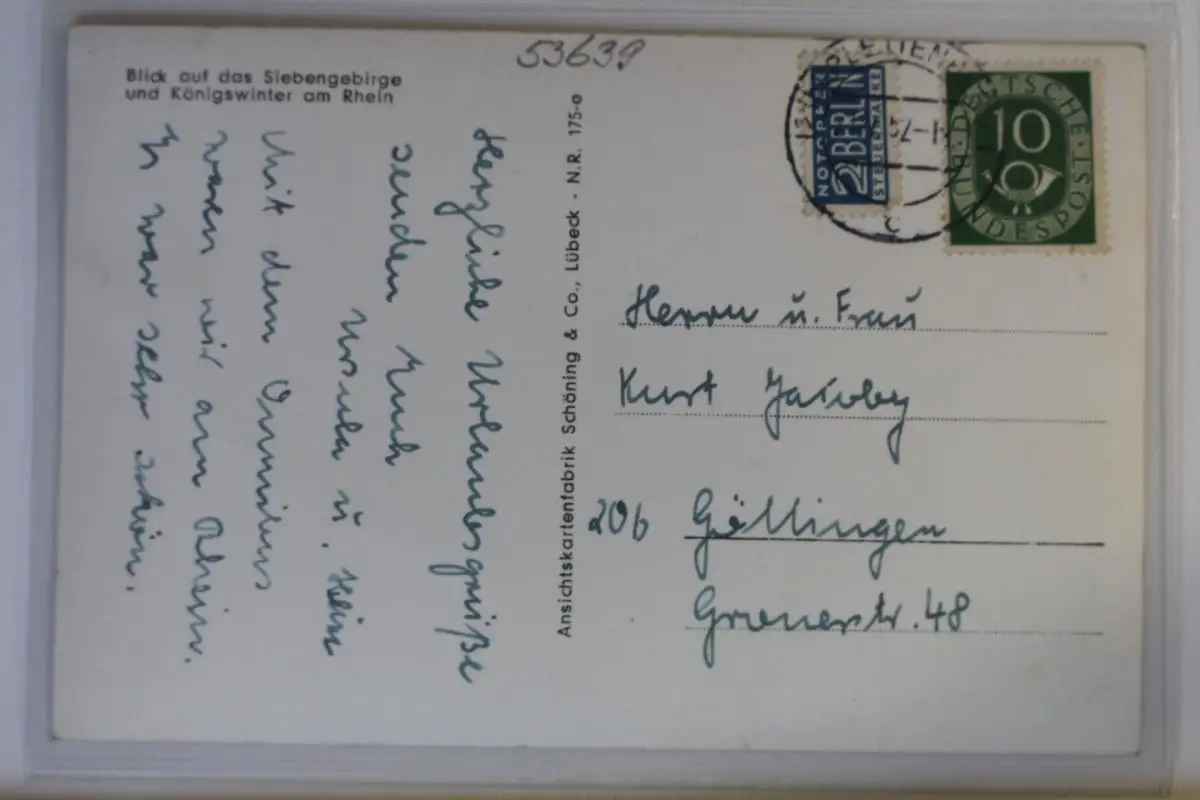 53639
Blick auf das Siebengebirge
und Königswinter am Rhein
Herzliche Urlaubsgrüße
senden Euch
Ursula u. Hein
Mit dem Omnibus
waren wir am Rhein.
Es war sehr schön.
Ansichtskartenfabrik Schöning & Co., Lübeck - N.R. 175-e
NOTOPFER
2 BERLIN
STEUERMARKE
DEUTSCHE BUNDESPOST
10
c
Herrn u. Frau
Kurt Jacoby
20b Göttingen
Gronerstr. 48